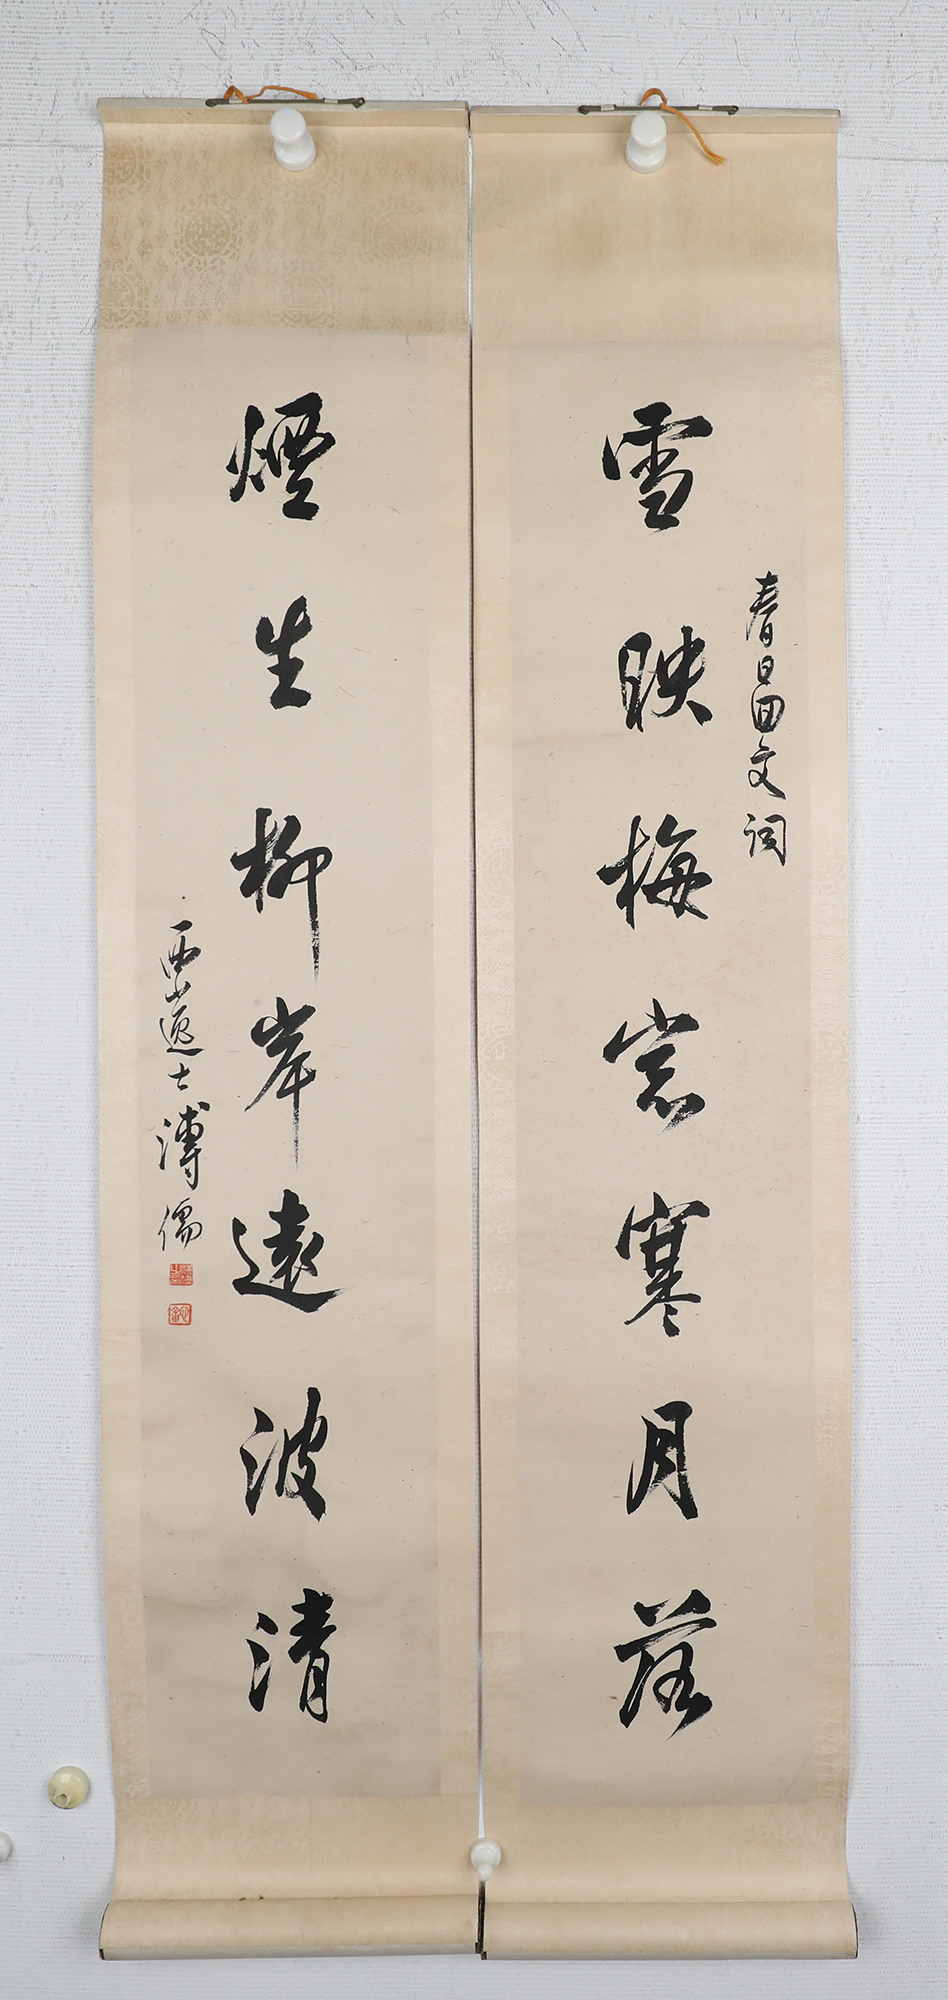 春日回文詞
雪映梅窓寒月落
煙生柳岸遠波清
西山逸士溥儒
心畬